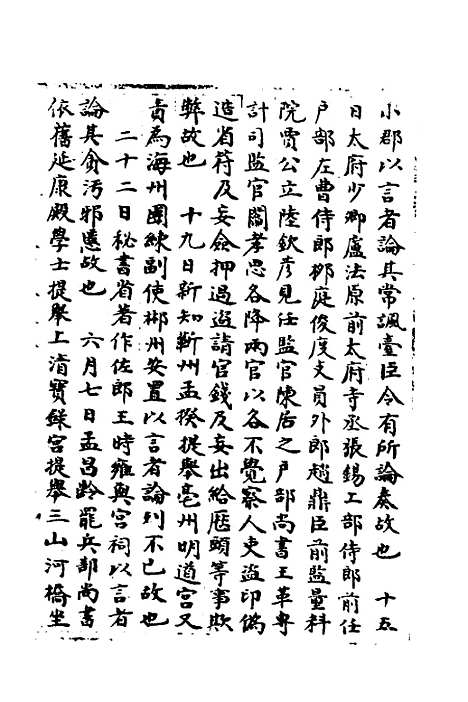 小郡以言者論其常諷臺臣令有所論奏故也　十五
日太府少卿盧法原前太府寺丞張錫工部侍郎前任
戶部左曹侍郎柳庭俊度支員外郎趙鼎臣前監量料
院賈公立陸欽彦見任監官陳居之戶部尚書王革專
計司監官閻孝思各降兩官以各不覺察人吏盜印偽
造省符及妄僉押過盜請官錢及妄出給歷頭等事欺
弊故也　十九日新知蘄州孟揆提舉亳州明道宮又
責為海州團練副使郴州安置以言者論列不已故也
二十二日秘書省著作佐郎王時雍與宮祠以言者
論其貪汚邪慝故也　六月七日孟昌齡罷兵部尚書
依舊延康殿學士提舉上清寶籙宮提舉三山河橋坐